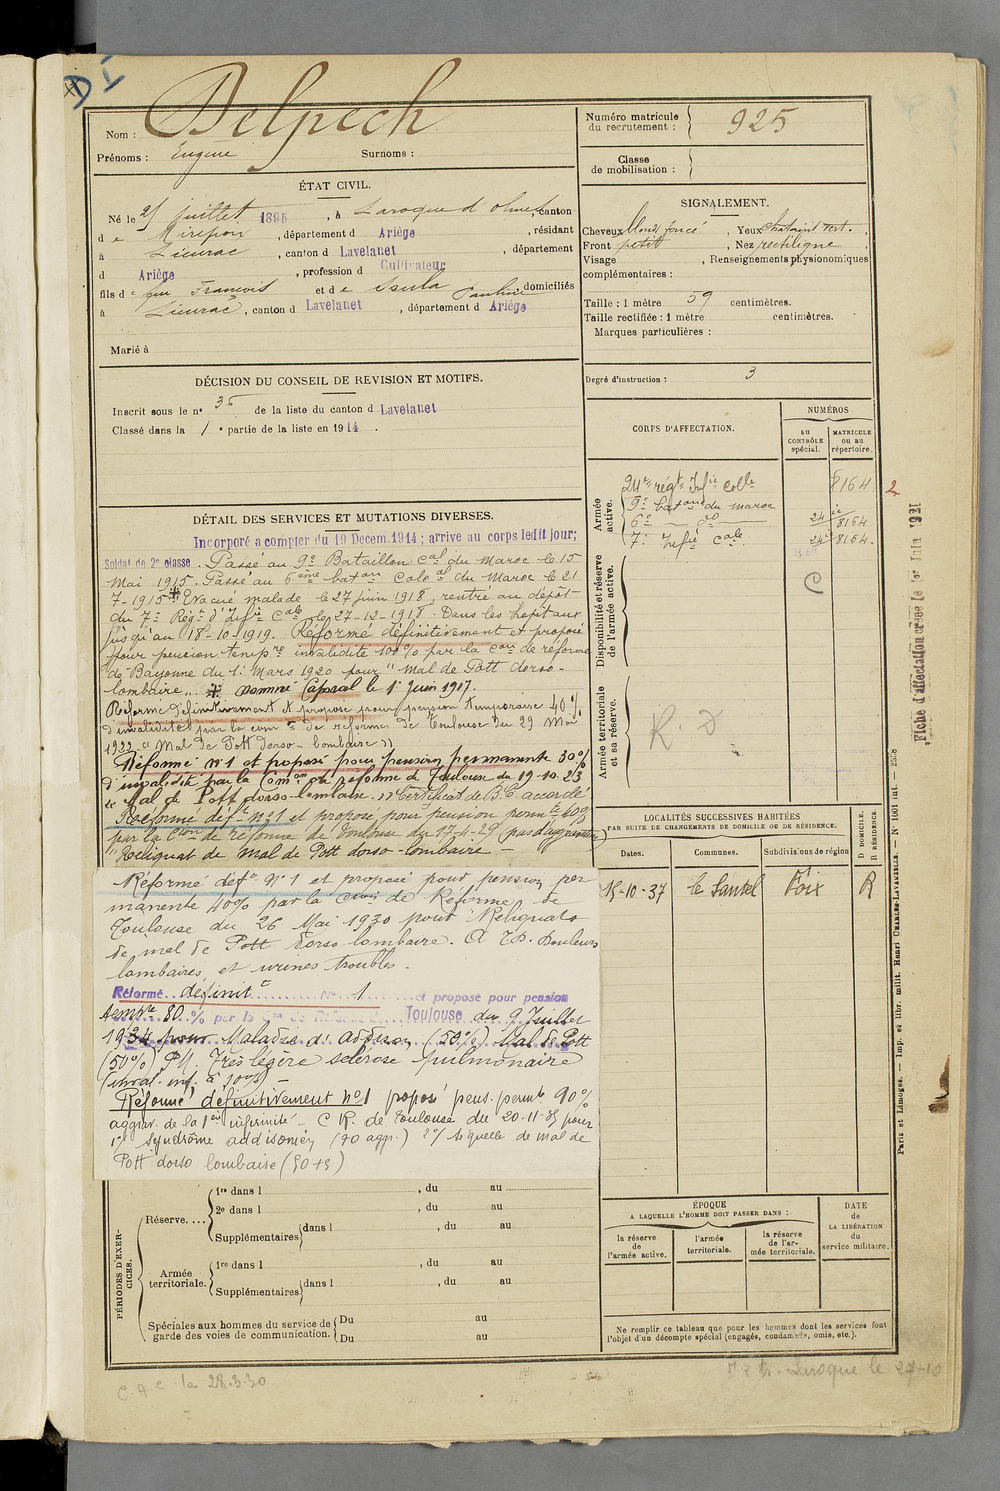 DI
Nom : Delpech
Prénoms : Eugène Surnoms :
Numéro matricule du recrutement : 925
Classe de mobilisation :
ÉTAT CIVIL.
Né le 25 juillet 1895, à Laroque d'olmes, canton
de Mirepoix, département d Ariège, résidant
à Lieurac, canton d Lavelanet, département
d Ariège, profession d Cultivateur
fils de feu François et de Pauline domiciliés
à Lieurac, canton d Lavelanet, département d Ariège
Marié à
SIGNALEMENT.
Cheveux blond foncé, Yeux chataint vert.
Front petit, Nez rectiligne
Visage , Renseignements physionomiques
complémentaires :
Taille : 1 mètre 59 centimètres.
Taille rectifiée : 1 mètre centimètres.
Marques particulières :
Degré d'instruction : 3
DÉCISION DU CONSEIL DE REVISION ET MOTIFS.
Inscrit sous le n° 36 de la liste du canton d Lavelanet
Classé dans la 1e partie de la liste en 1914.
CORPS D'AFFECTATION.
NUMÉROS
au CONTRÔLE spécial.
MATRICULE ou au répertoire.
Armée active.
24e regt Infie Colle 8164
9e baton du maroc
6e — do — 24e 8164
7e Infie cale 24e 8164.
2
Disponibilité et réserve de l'armée active.
C
Armée territoriale et sa réserve.
R. D
DÉTAIL DES SERVICES ET MUTATIONS DIVERSES.
Incorporé a compter du 19 Decem. 1914 ; arrivé au corps ledit jour;
Soldat de 2e classe. Passé au 9e Bataillon cal du Maroc le 15
Mai 1915. Passé au 6ème batan Colo al du Maroc le 21
7-1915 * Evacué malade le 27 juin 1918, rentré au dépôt
du 7e Régt d'Infie cale le 27-12-1918. Dans les hopitaux
jusqu'au 18-10-1919. Réformé définitivement et proposé
pour pension tempre invalidité 100% par la Con de réforme
de Bayonne du 1er Mars 1920 pour "Mal de Pott dorso-
lombaire". * nommé Caporal le 1er Juin 1917.
Réformé définitivement et proposé pour pension temporaire 40%
d'invalidité par la comon de réformes de Toulouse du 29 Mai
1922 "Mal de Pott dorso-lombaire"
Réformé n° 1 et proposé pour pension permanente 30%
d'invalidité par la Comon de réforme de Toulouse du 19-10-23
"Mal de Pott dorso-lombaire." Certificat de B.C. accordé
Réformé déft n° 1 et proposé pour pension permte 60%
par la Con de réforme de Toulouse du 17-4-29 (pas d'aggravation)
"Reliquat de Mal de Pott dorso-lombaire —
Réformé déft N° 1 et proposé pour pension per
manente 40% par la Cion de Réforme de
Toulouse du 26 Mai 1930 pour Reliquats
de mal de Pott dorso-lombaire. Douleurs
lombaires et urines troubles.
Réformé définitt N° 1 et proposé pour pension
tempre 80 % par la Con de Réforme de Toulouse du 9 Juillet
1934 pour Maladie d'addison (50%) Mal de Pott
(50%) Très légère sclérose pulmonaire
(inval. inf. à 10%) —
Réformé définitivement n°1 proposé pens. permte 90%
aggrav. de la 1ère infirmité — C R. de Toulouse du 20-11-35 pour
1° syndrome addisonien (70 agg.) 2°/ séquelle de mal de
Pott dorso lombaire (50+5)
LOCALITÉS SUCCESSIVES HABITÉES
PAR SUITE DE CHANGEMENTS DE DOMICILE OU DE RÉSIDENCE.
Dates. Communes. Subdivisions de région D DOMICILE. R RÉSIDENCE
15-10-37 le Sautel Foix R
PÉRIODES D'EXERCICES.
Réserve....
1re dans l , du au
2e dans l , du au
Supplémentaires dans l , du au
Armée territoriale.
1re dans l , du au
Supplémentaires dans l , du au
Spéciales aux hommes du service de garde des voies de communication.
Du au
Du au
ÉPOQUE
A LAQUELLE L'HOMME DOIT PASSER DANS :
la réserve de l'armée active.
l'armée territoriale.
la réserve de l'armée territoriale.
DATE DE LA LIBÉRATION du service militaire.
Ne remplir ce tableau que pour les hommes dont les services font
l'objet d'un décompte spécial (engagés, condamnés, omis, etc.).
Fiche d'affectation créée le 1er Juin 1921
Paris et Limoges. — Imp. et libr. milit. Henri CHARLES-LAVAUZELLE. — N° 1001 int. — 2558
C.A.C le 28.3.30
Laroque le 27-10